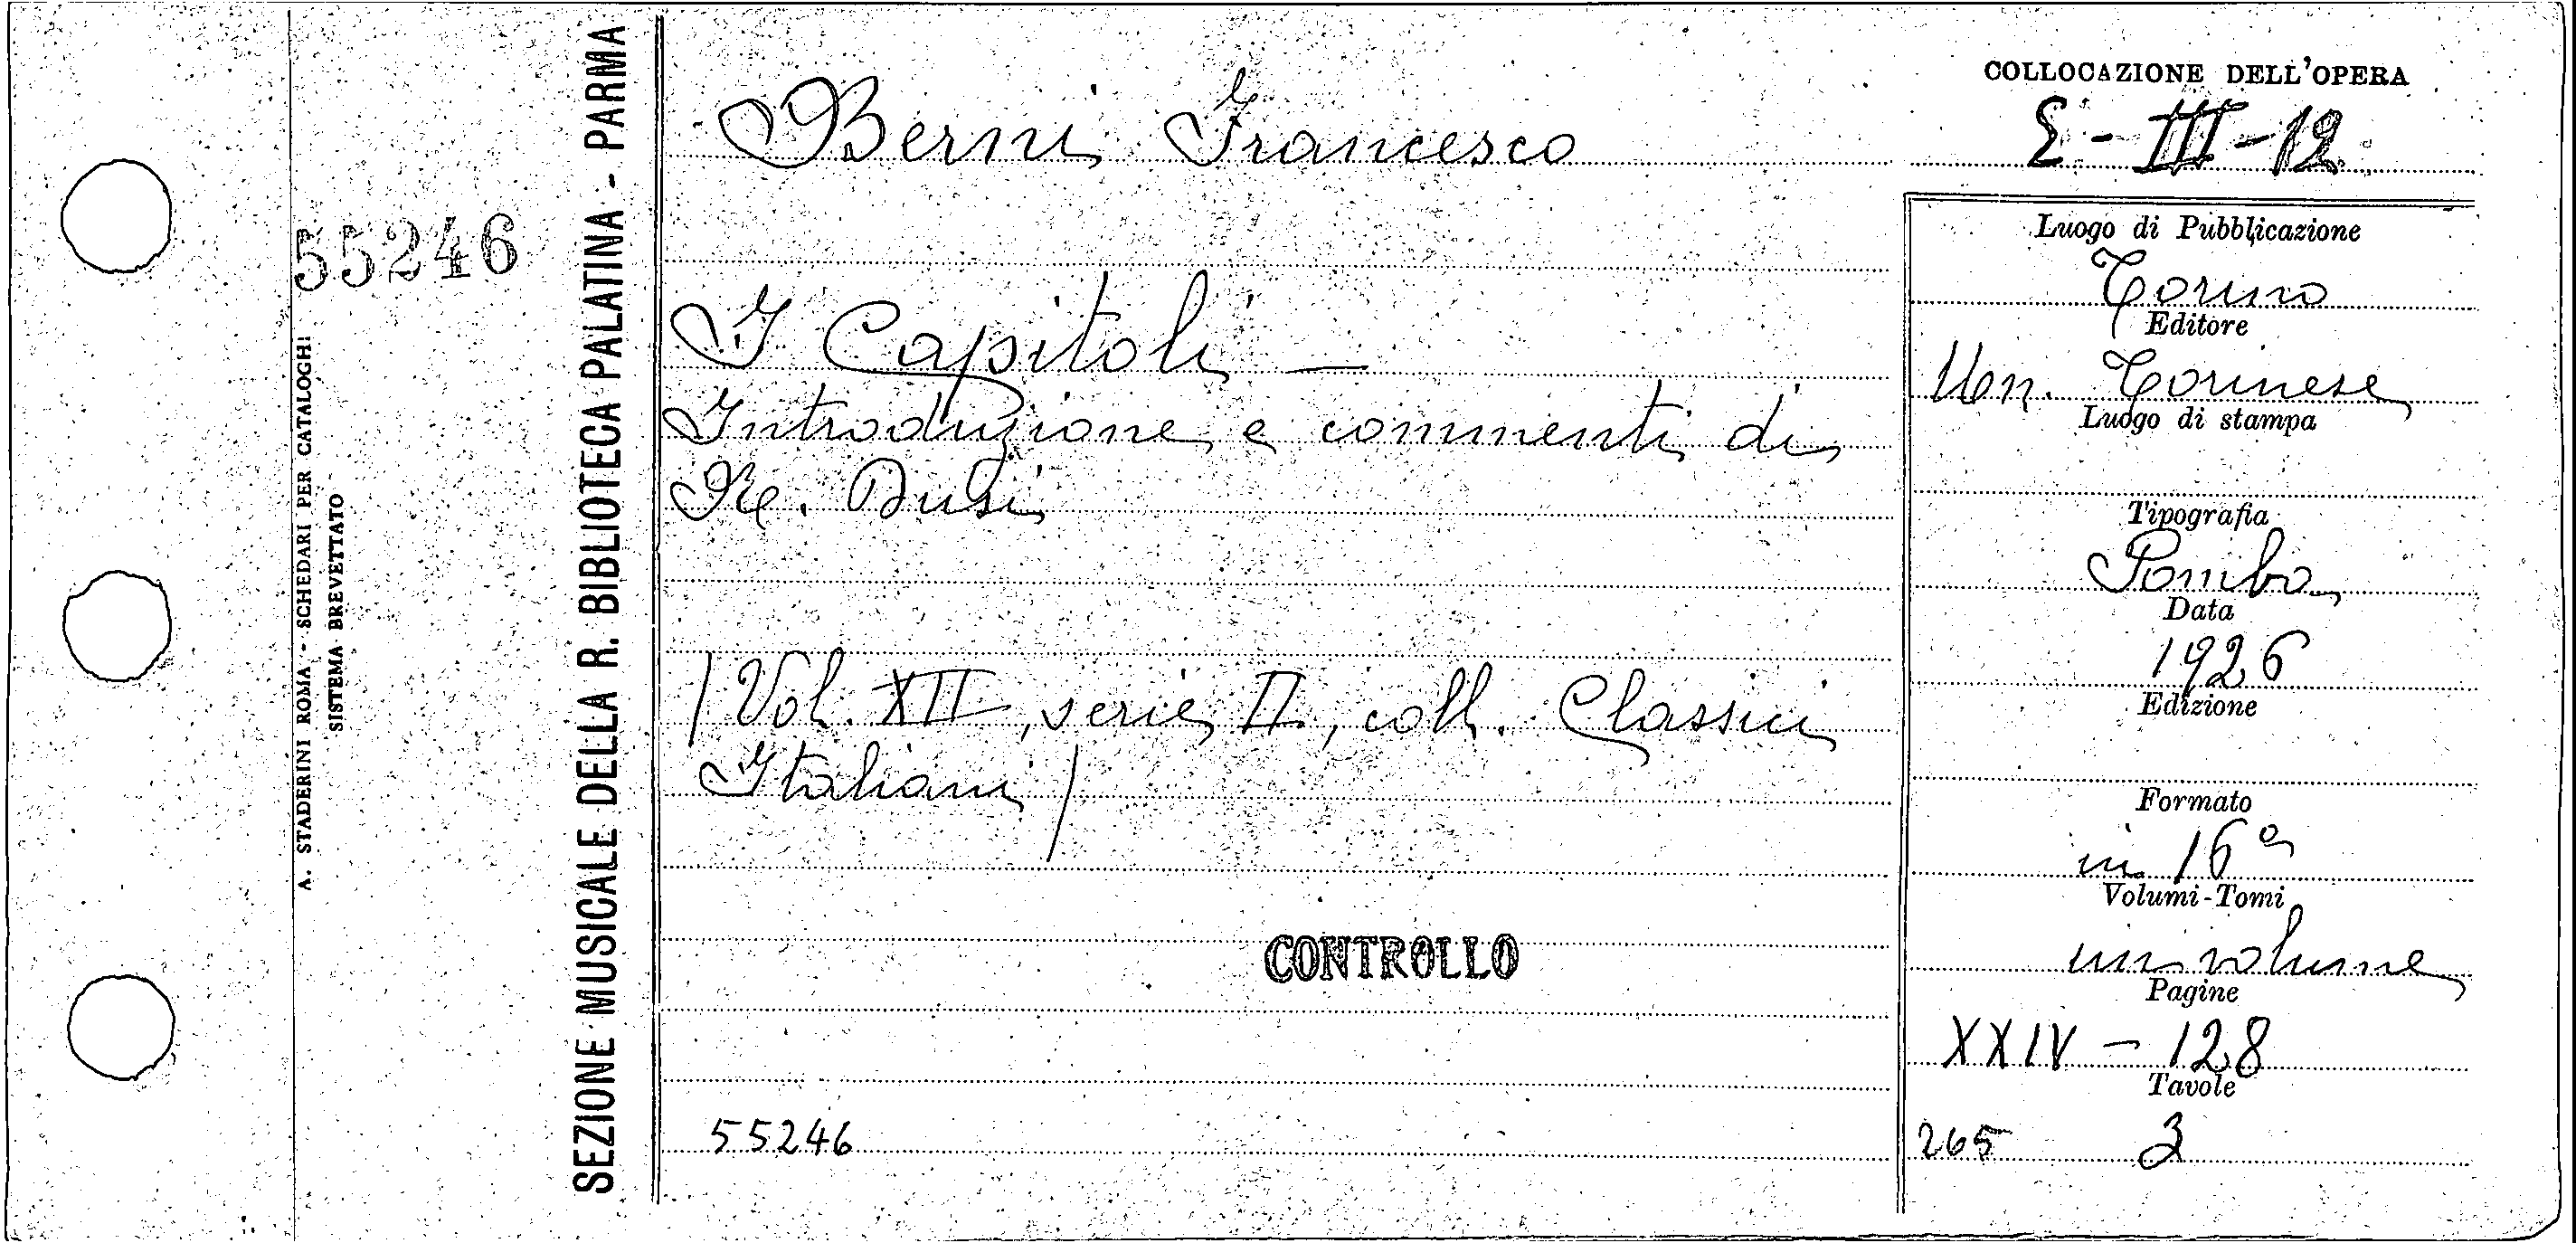 COLLOCAZIONE DELL'OPERA
Berni Francesco
Σ - III - 12
55246
I Capitoli —
Introduzione e commenti di
Re. Busi
/ Vol. XII, serie II, coll. Classici
Italiani /
CONTROLLO
55246
Luogo di Pubblicazione
Torino
Editore
Un. Torinese
Luogo di stampa
Tipografia
Pomba
Data
1926
Edizione
Formato
in 16°
Volumi-Tomi
un volume
Pagine
XXIV - 128
Tavole
265
SEZIONE MUSICALE DELLA R. BIBLIOTECA PALATINA - PARMA
A. STADERINI ROMA - SCHEDARI PER CATALOGHI
SISTEMA BREVETTATO